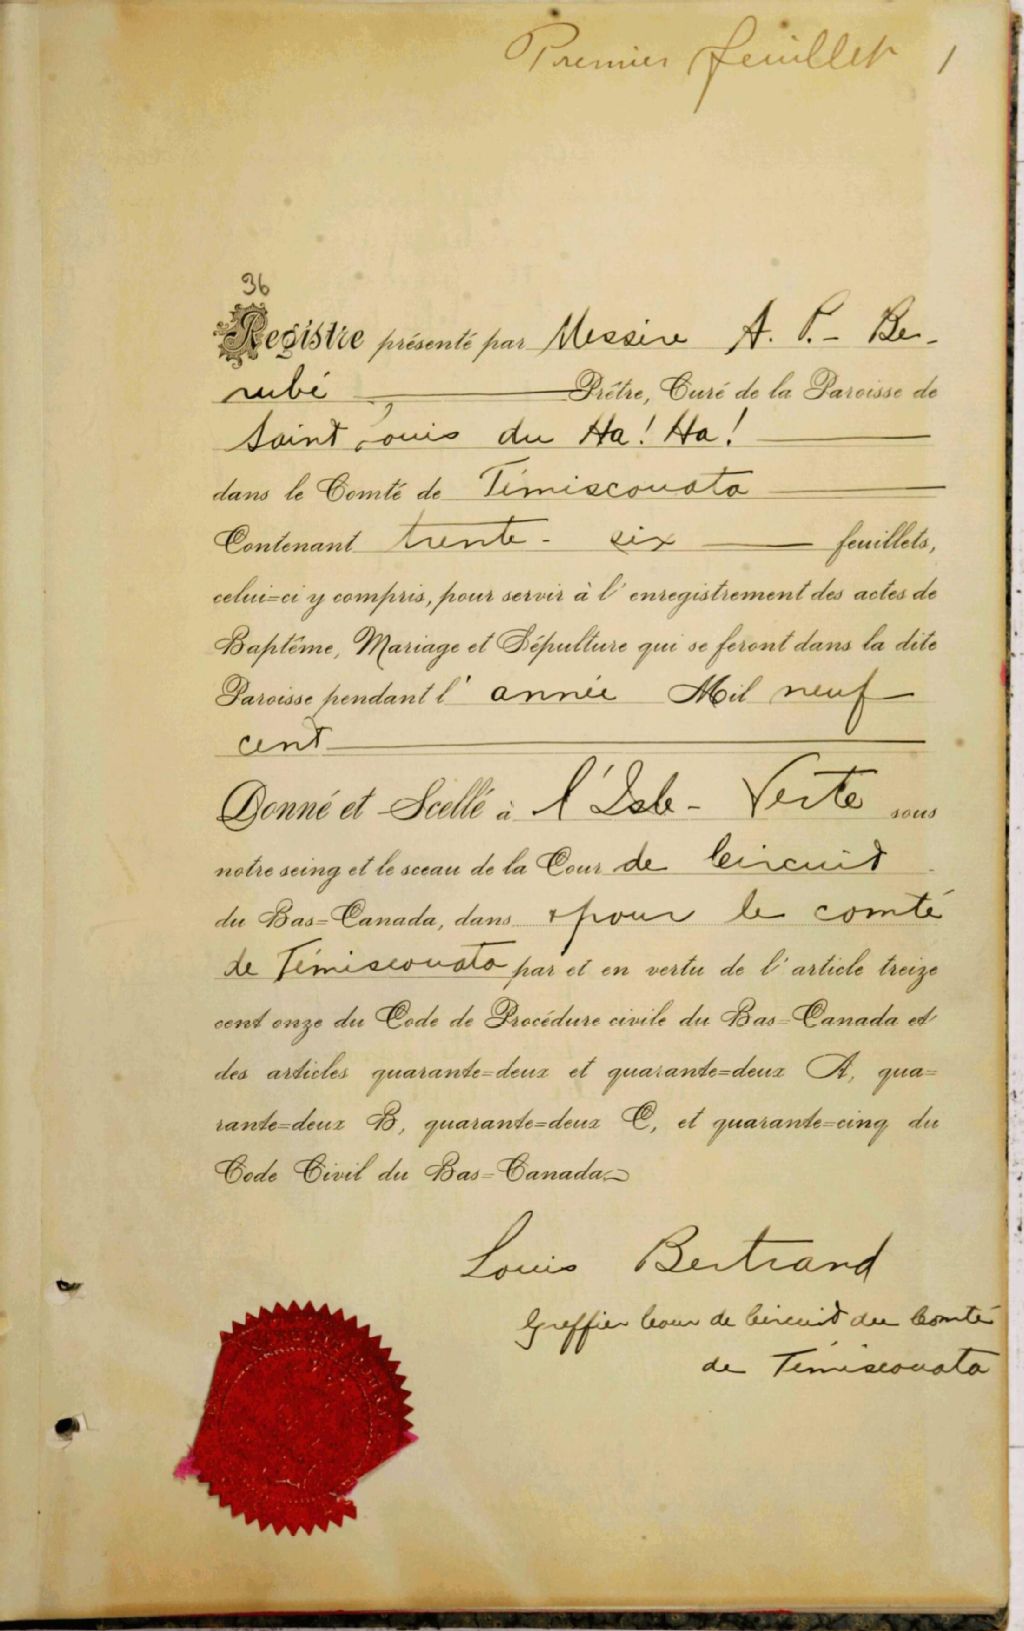 Premier feuillet 1
36
Registre présenté par Messire A. P. - Be-
rubé Prêtre, Curé de la Paroisse de
Saint Louis du Ha! Ha!
dans le Comté de Témiscouata
Contenant trente - six feuillets,
celui=ci y compris, pour servir à l' enregistrement des actes de
Baptême, Mariage et Sépulture qui se feront dans la dite
Paroisse pendant l' année Mil neuf
cent
Donné et Scellé à l'Isle - Verte sous
notre seing et le sceau de la Cour de Circuit
du Bas=Canada, dans & pour le comté
de Témiscouata par et en vertu de l' article treize
cent onze du Code de Procédure civile du Bas=Canada et
des articles quarante=deux et quarante=deux A, qua=
rante=deux B, quarante=deux C, et quarante=cinq du
Code Civil du Bas=Canada.
Louis Bertrand
Greffier Cour de Circuit du Comté
de Témiscouata